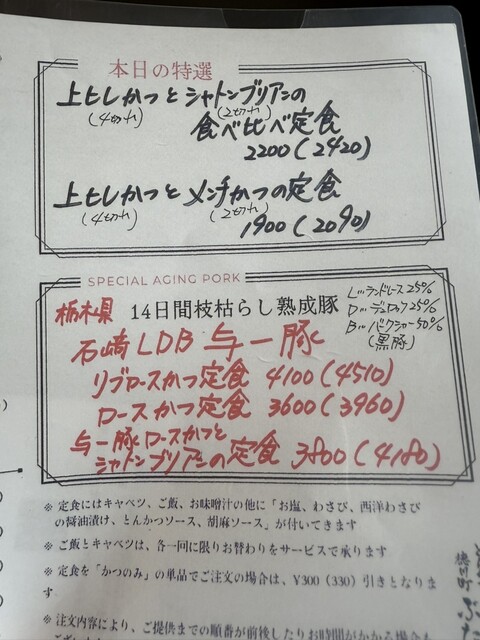 本日の特選
上ヒレかつとシャトンブリアンの
(4切れ) (2切れ)
食べ比べ定食
2200(2420)
上ヒレかつとメンチかつの定食
(4切れ) (2切れ)
1900(2090)
SPECIAL AGING PORK
栃木県 14日間枝枯らし熟成豚
L…ランドレース25%
D…デュロック25%
B…バークシャー50%
(黒豚)
石崎LDB与一豚
リブロースかつ定食 4100(4510)
ロースかつ定食 3600(3960)
与一豚ロースかつと
シャトンブリアンの定食 3800(4180)
※ 定食にはキャベツ、ご飯、お味噌汁の他に「お塩、わさび、西洋わさび
の醤油漬け、とんかつソース、胡麻ソース」が付いてきます
※ ご飯とキャベツは、各一回に限りお替わりをサービスで承ります
※ 定食を「かつのみ」の単品でご注文の場合は、¥300（330）引きとなりま
す
※ 注文内容により、ご提供までの順番が前後したりお時間がかかる場合